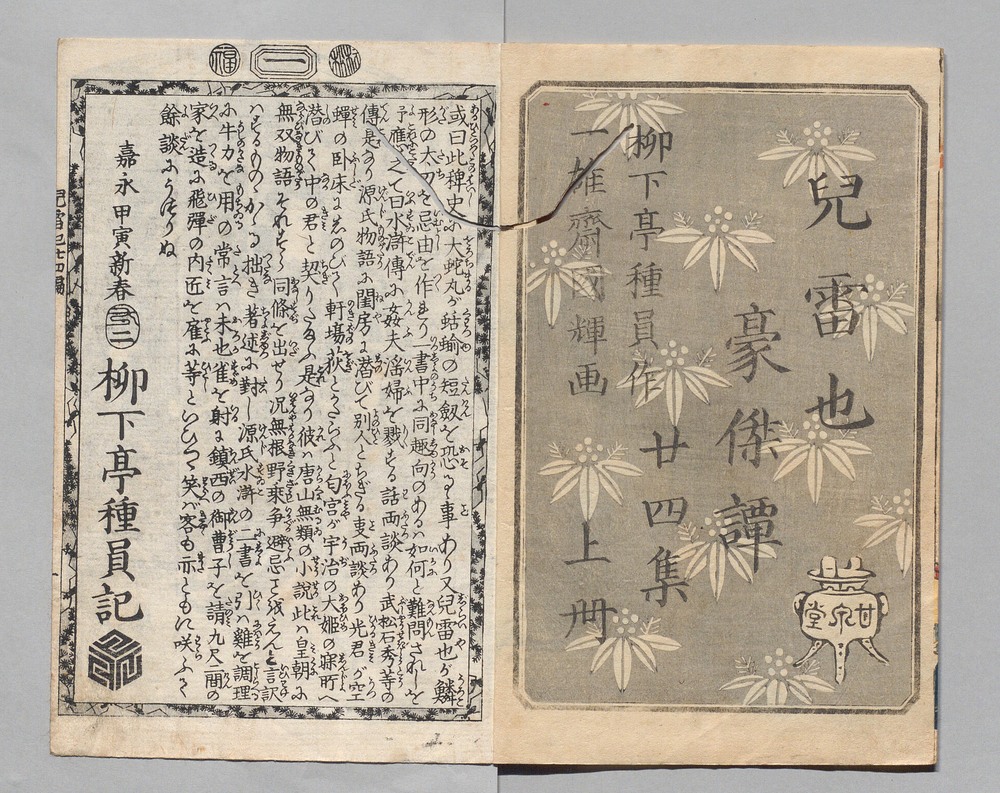 兒雷也
豪傑譚
廿四集
上册
柳下亭種員作
一雄齋國輝画
甘泉堂
福
一
或曰此稗史に大蛇丸が蛞蝓の短劔を恐るゝ事あり又兒雷也が鱗
形の太刀を忌由を作れり一書中に同趣向のあるは如何と難問されしを
予應へて曰水滸傳に姦夫滛婦を戮する話両談あり武松石秀等の
傳是なり源氏物語に閨房に潜びて別人とちぎる支両談あり光君が空
蟬の卧床にしのびて軒場荻とかたらふと匂宮が宇治の大姫の寐所へ
潜びて中の君と契りたまふ是なり彼は唐山無類の小説此は皇朝に
無双物語それすら同條を出せり况無根野乗争避忌を残えんと言訳
はするものゝかゝる拙き著述に對し源氏水滸の二書を引は雞を調理
に牛刀を用の常言に未也雀を射に鎮西の御曹子を請九尺二間の
家を造に飛彈の内匠を雇に等といひつゝ笑ば客も亦ともに咲ふて
餘談にうつりぬ
嘉永甲寅新春
柳下亭種員記